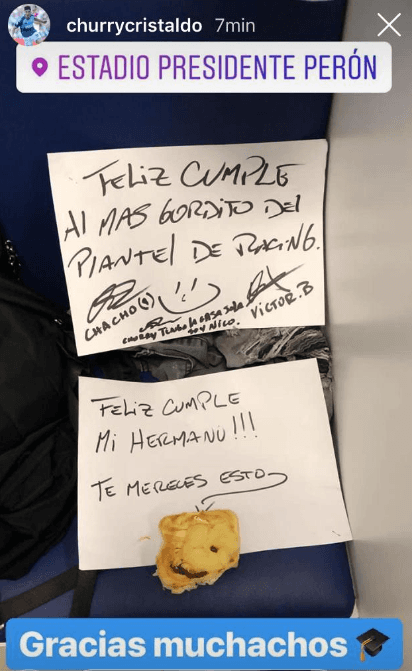 churrycristaldo 7min
ESTADIO PRESIDENTE PERÓN
FELIZ CUMPLE
Al MAS GORDITO DEl
PlANTEl DE RACING.
CHACHO (9)
VICTOR.B
CHURRY TENGO lA CASA SOlA
SOY NICO.
FELIZ CUMPLE
MI HERMANO!!!
TE MERECES ESTO
Gracias muchachos